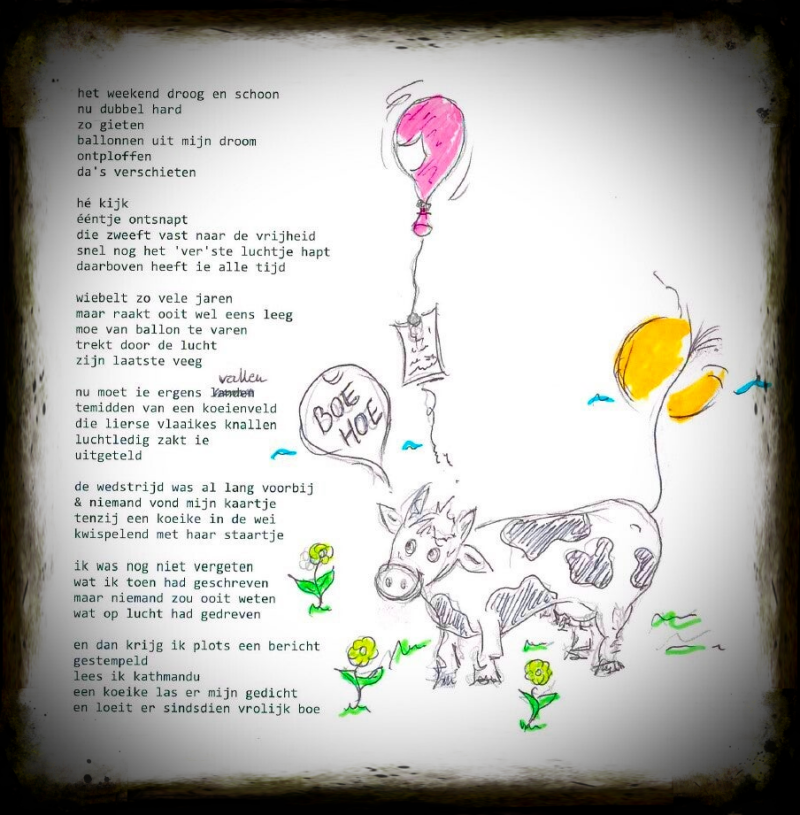 het weekend droog en schoon
nu dubbel hard
zo gieten
ballonnen uit mijn droom
ontploffen
da's verschieten
hé kijk
ééntje ontsnapt
die zweeft vast naar de vrijheid
snel nog het 'ver'ste luchtje hapt
daarboven heeft ie alle tijd
wiebelt zo vele jaren
maar raakt ooit wel eens leeg
moe van ballon te varen
trekt door de lucht
zijn laatste veeg
nu moet ie ergens vallen
temidden van een koeienveld
die lierse vlaaikes knallen
luchtledig zakt ie
uitgeteld
de wedstrijd was al lang voorbij
& niemand vond mijn kaartje
tenzij een koeike in de wei
kwispelend met haar staartje
ik was nog niet vergeten
wat ik toen had geschreven
maar niemand zou ooit weten
wat op lucht had gedreven
en dan krijg ik plots een bericht
gestempeld
lees ik kathmandu
een koeike las er mijn gedicht
en loeit er sindsdien vrolijk boe
BOE
HOE